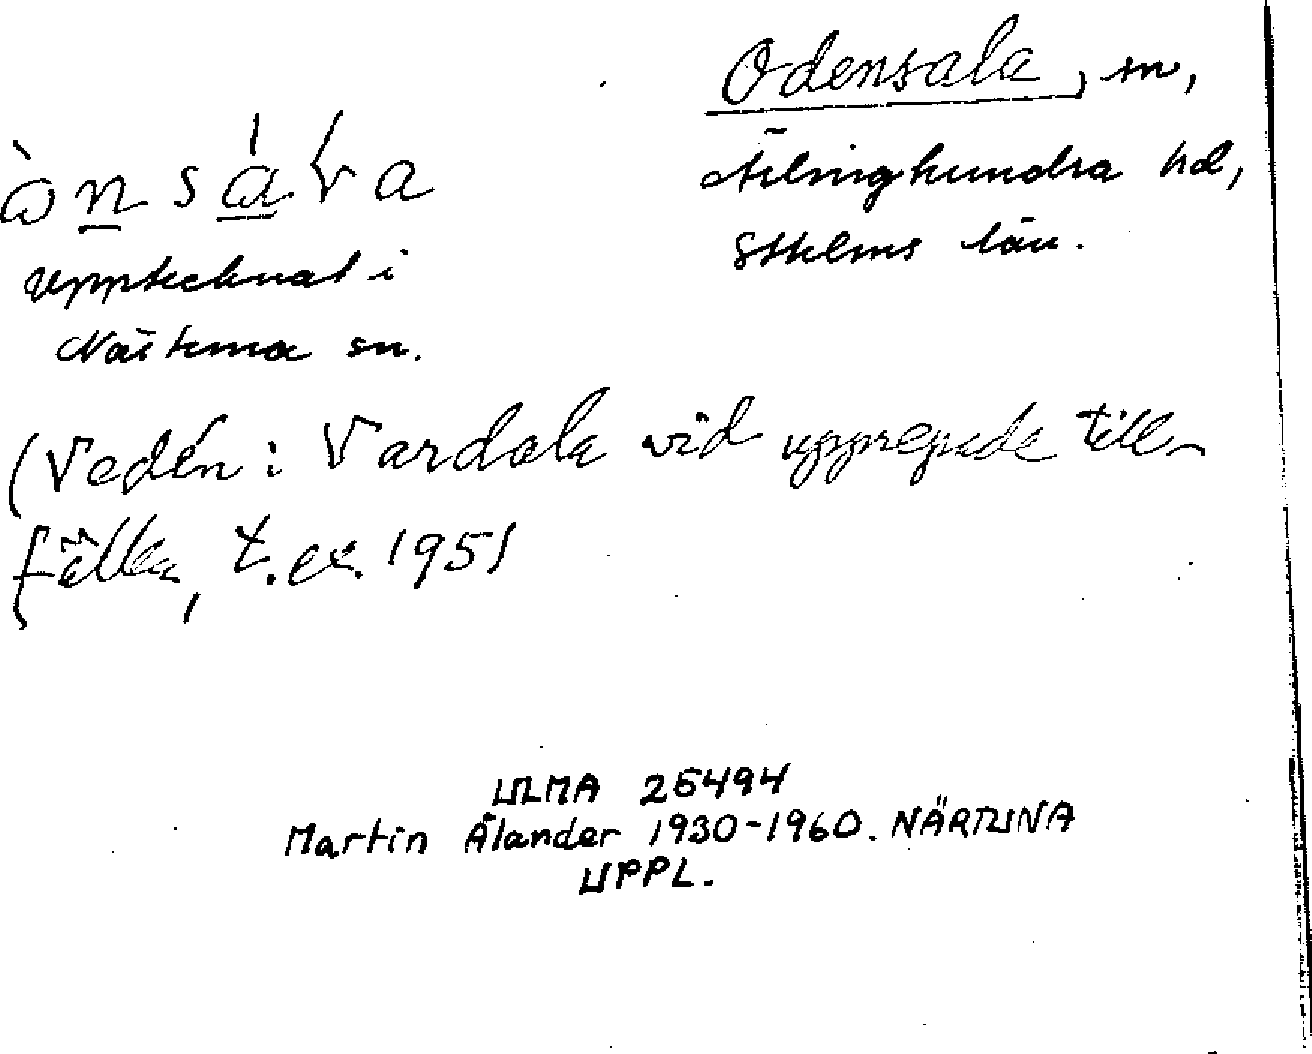 Odensala, sn,
Ärlinghundra hd,
Sthlms län.
ònsáva
upptecknat i
Närtuna sn.
(Vedén i Vardala vid upprepade till-
fällen, t.ex. 1951
ULMA 26494
Martin Ålander 1930-1960. NÄRTUNA
UPPL.